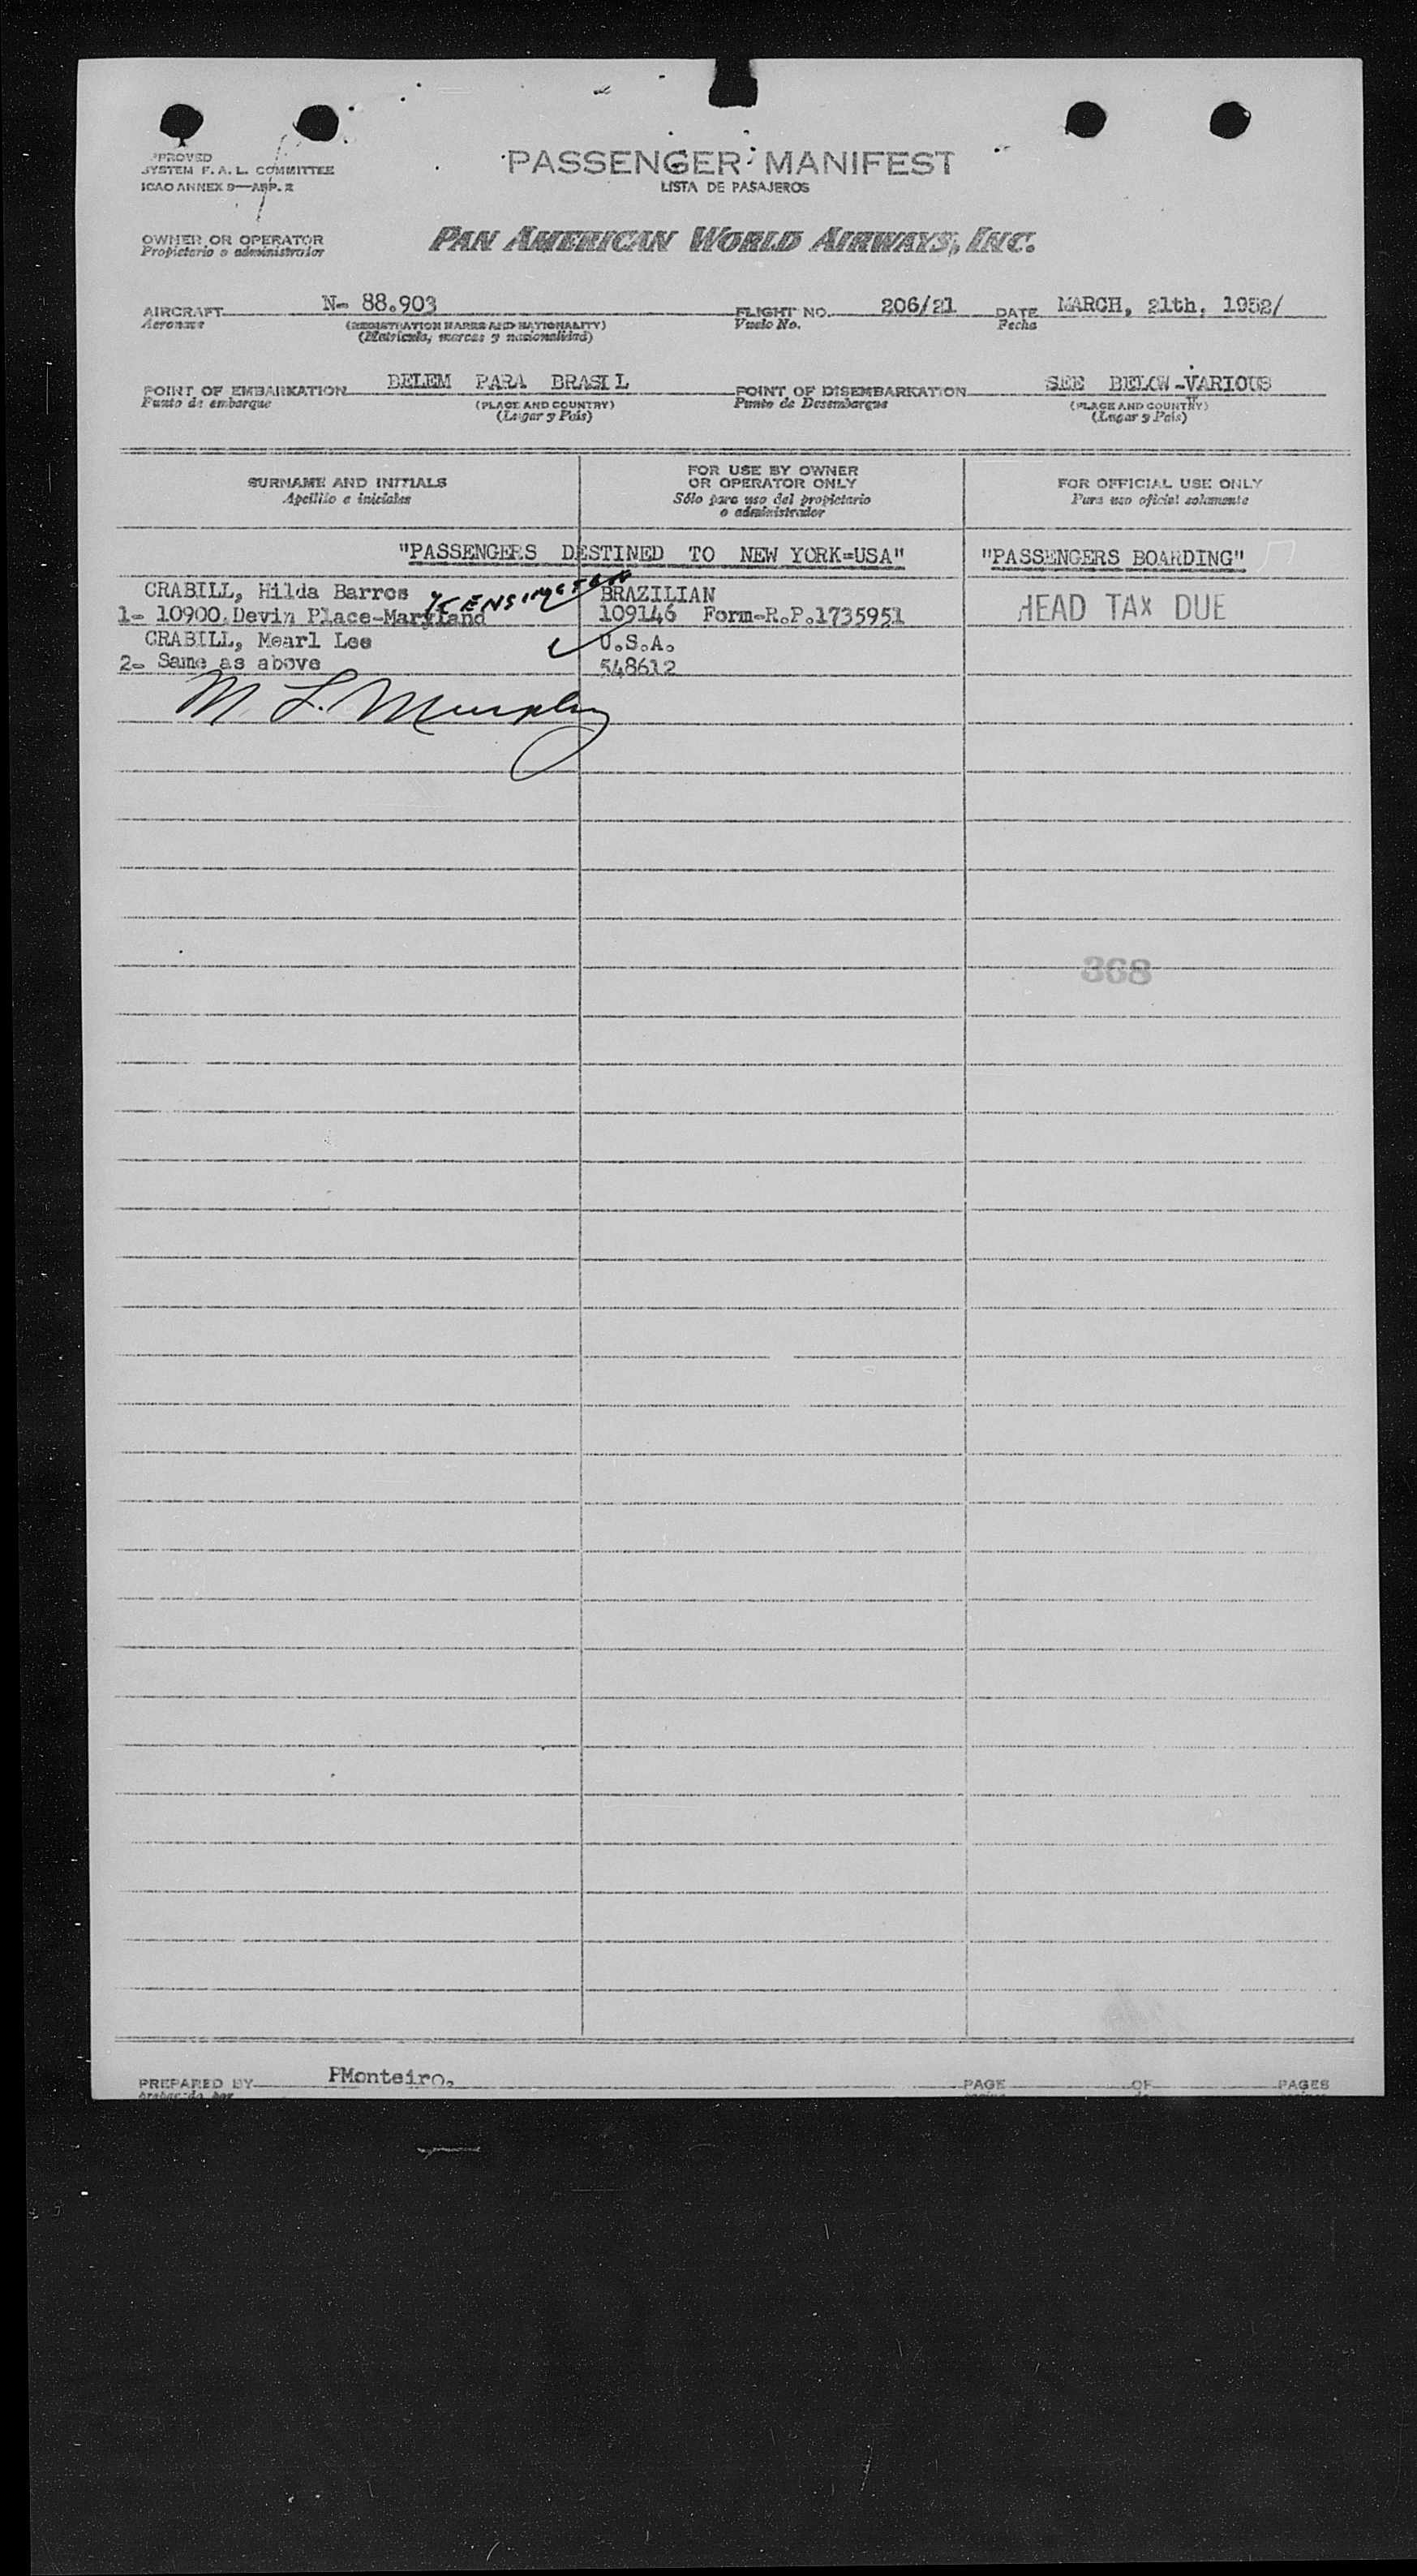 PROVED
SYSTEM F. A. L. COMMITTEE
ICAO ANNEX 9—APP. 2
PASSENGER MANIFEST
LISTA DE PASAJEROS
OWNER OR OPERATOR
Propietario o administrador
PAN AMERICAN WORLD AIRWAYS, INC.
AIRCRAFT N- 88.903 FLIGHT NO. 206/21 DATE MARCH, 21th, 1952/
Aeronave (REGISTRATION MARKS AND NATIONALITY) Vuelo No. Fecha
(Matrícula, marcas y nacionalidad)
POINT OF EMBARKATION BELEM PARA BRASIL POINT OF DISEMBARKATION SEE BELOW-VARIOUS
Punto de embarque (PLACE AND COUNTRY) Punto de Desembarque (PLACE AND COUNTRY)
(Lugar y País) (Lugar y País)
SURNAME AND INITIALS
Apellido e iniciales
FOR USE BY OWNER
OR OPERATOR ONLY
Sólo para uso del propietario
o administrador
FOR OFFICIAL USE ONLY
Para uso oficial solamente
"PASSENGERS DESTINED TO NEW YORK=USA" "PASSENGERS BOARDING"
CRABILL, Hilda Barros KENSINGTON BRAZILIAN
1- 10900.Devin Place-Maryland 109146 Form-R.P.1735951 HEAD TAX DUE
CRABILL, Mearl Lee U.S.A.
2- Same as above 548612
M. L. Murphy
368
PREPARED BY PMonteiro. PAGE OF PAGES